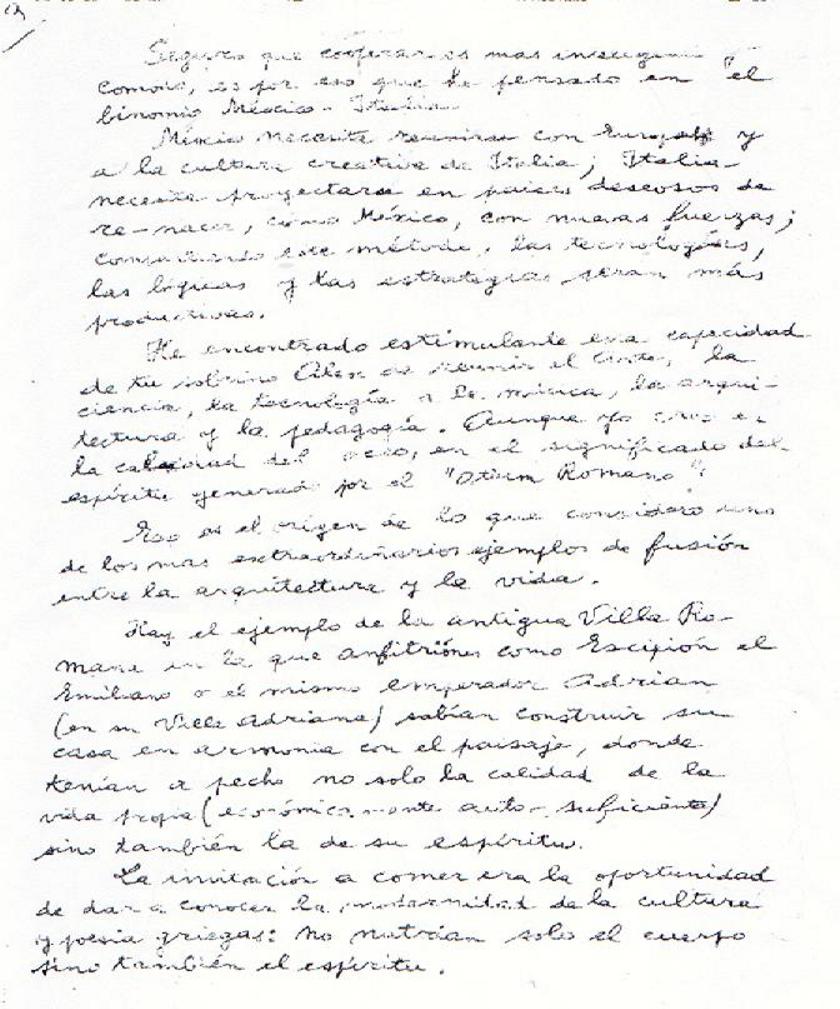 Seguro que cooperar es mas
comodo, es por eso que he pensado en el
binomio México - Italia.
México necesita reunirse con Europa y
a la cultura creativa de Italia; Italia
necesita proyectarse en paises deseosos de
re-nacer, como México, con nuevas fuerzas;
compartiendo este método, las tecnologías,
las lógicas y las estrategias seran más
productivas.
He encontrado estimulante esa capacidad
de tu sobrino Alex de reunir el Arte, la
ciencia, la tecnología a la música, la arqui-
tectura y la pedagogía. Aunque yo creo en
la calidad del ocio, en el significado del
espíritu generado por el "Otium Romano".
Eso es el origen de lo que considero uno
de los mas extraordinarios ejemplos de fusión
entre la arquitectura y la vida.
Hay el ejemplo de la antigua Villa Ro-
mana en la que anfitriónes como Escipión el
Emiliano o el mismo emperador Adrian
(en su Villa Adriana) sabían construir su
casa en armonia con el paisaje, donde
tenían a pecho no solo la calidad de la
vida propia (económicamente auto-suficiente)
sino también la de su espíritu.
La invitación a comer era la oportunidad
de dar a conocer la modernidad de la cultura
y poesia griegas: no nutrían solo el cuerpo
sino también el espíritu.